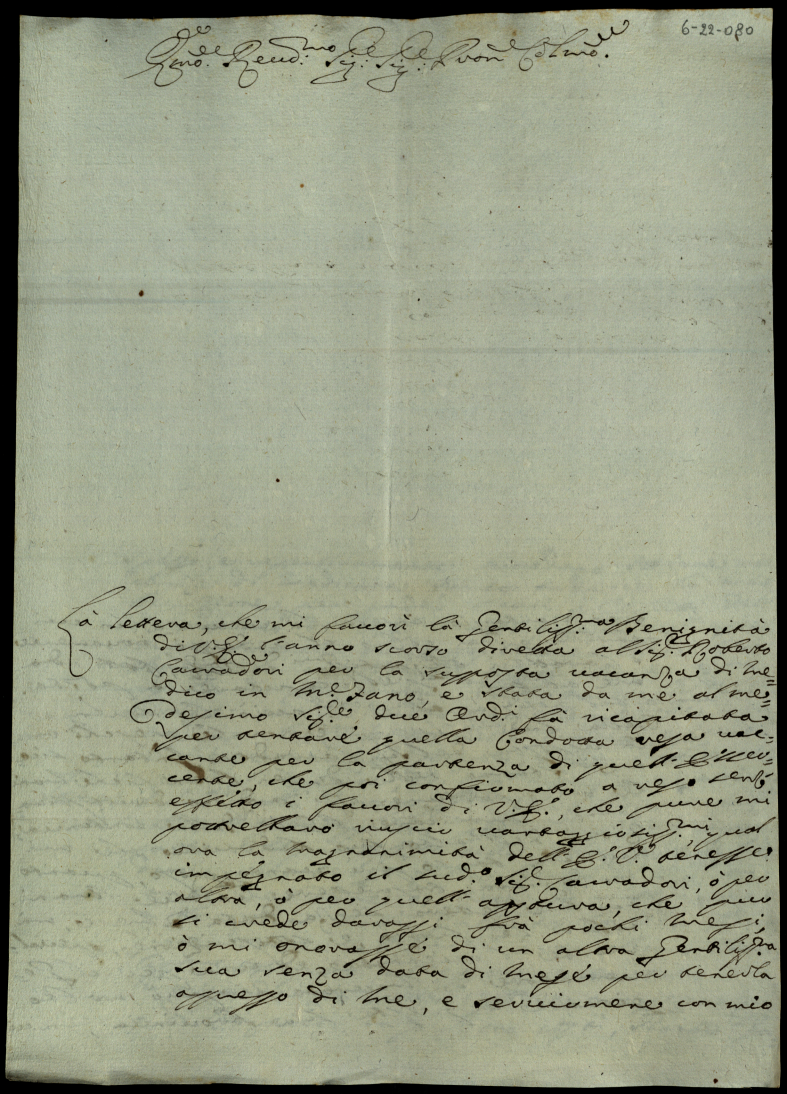 6-22-080
Rmō: Reud:mo Sig: Sig: Pron Colmō.
La lettera, che mi fauorì la Gentiliss:ma Benignità
di V:S: l'anno scorso diretta al Sig: Roberto
Caivadori per la supposta uacanza di me=
dico in Mezzano, è stata da me al me=
desimo Sig:re due Ord:i fà ricapitata
per tentare quella Condotta resa uac=
cante per la partenza di quell'
che poi confirmato a rese
effetto i fauori di V:S:, che pure mi
potrebbero riuscir uantaggiosiss:mi, qual
ora la magnanimità dell' tenesse
impegnato il sud:o Sig: Caivadori, ò per
altra, ò per quell' apertura, che può
si crede darassi frà pochi mesi,
ò mi onorasse di un altra Gentiliss:ma
sua senza data di mese per tenerla
appresso di me, e seruirmene con mio